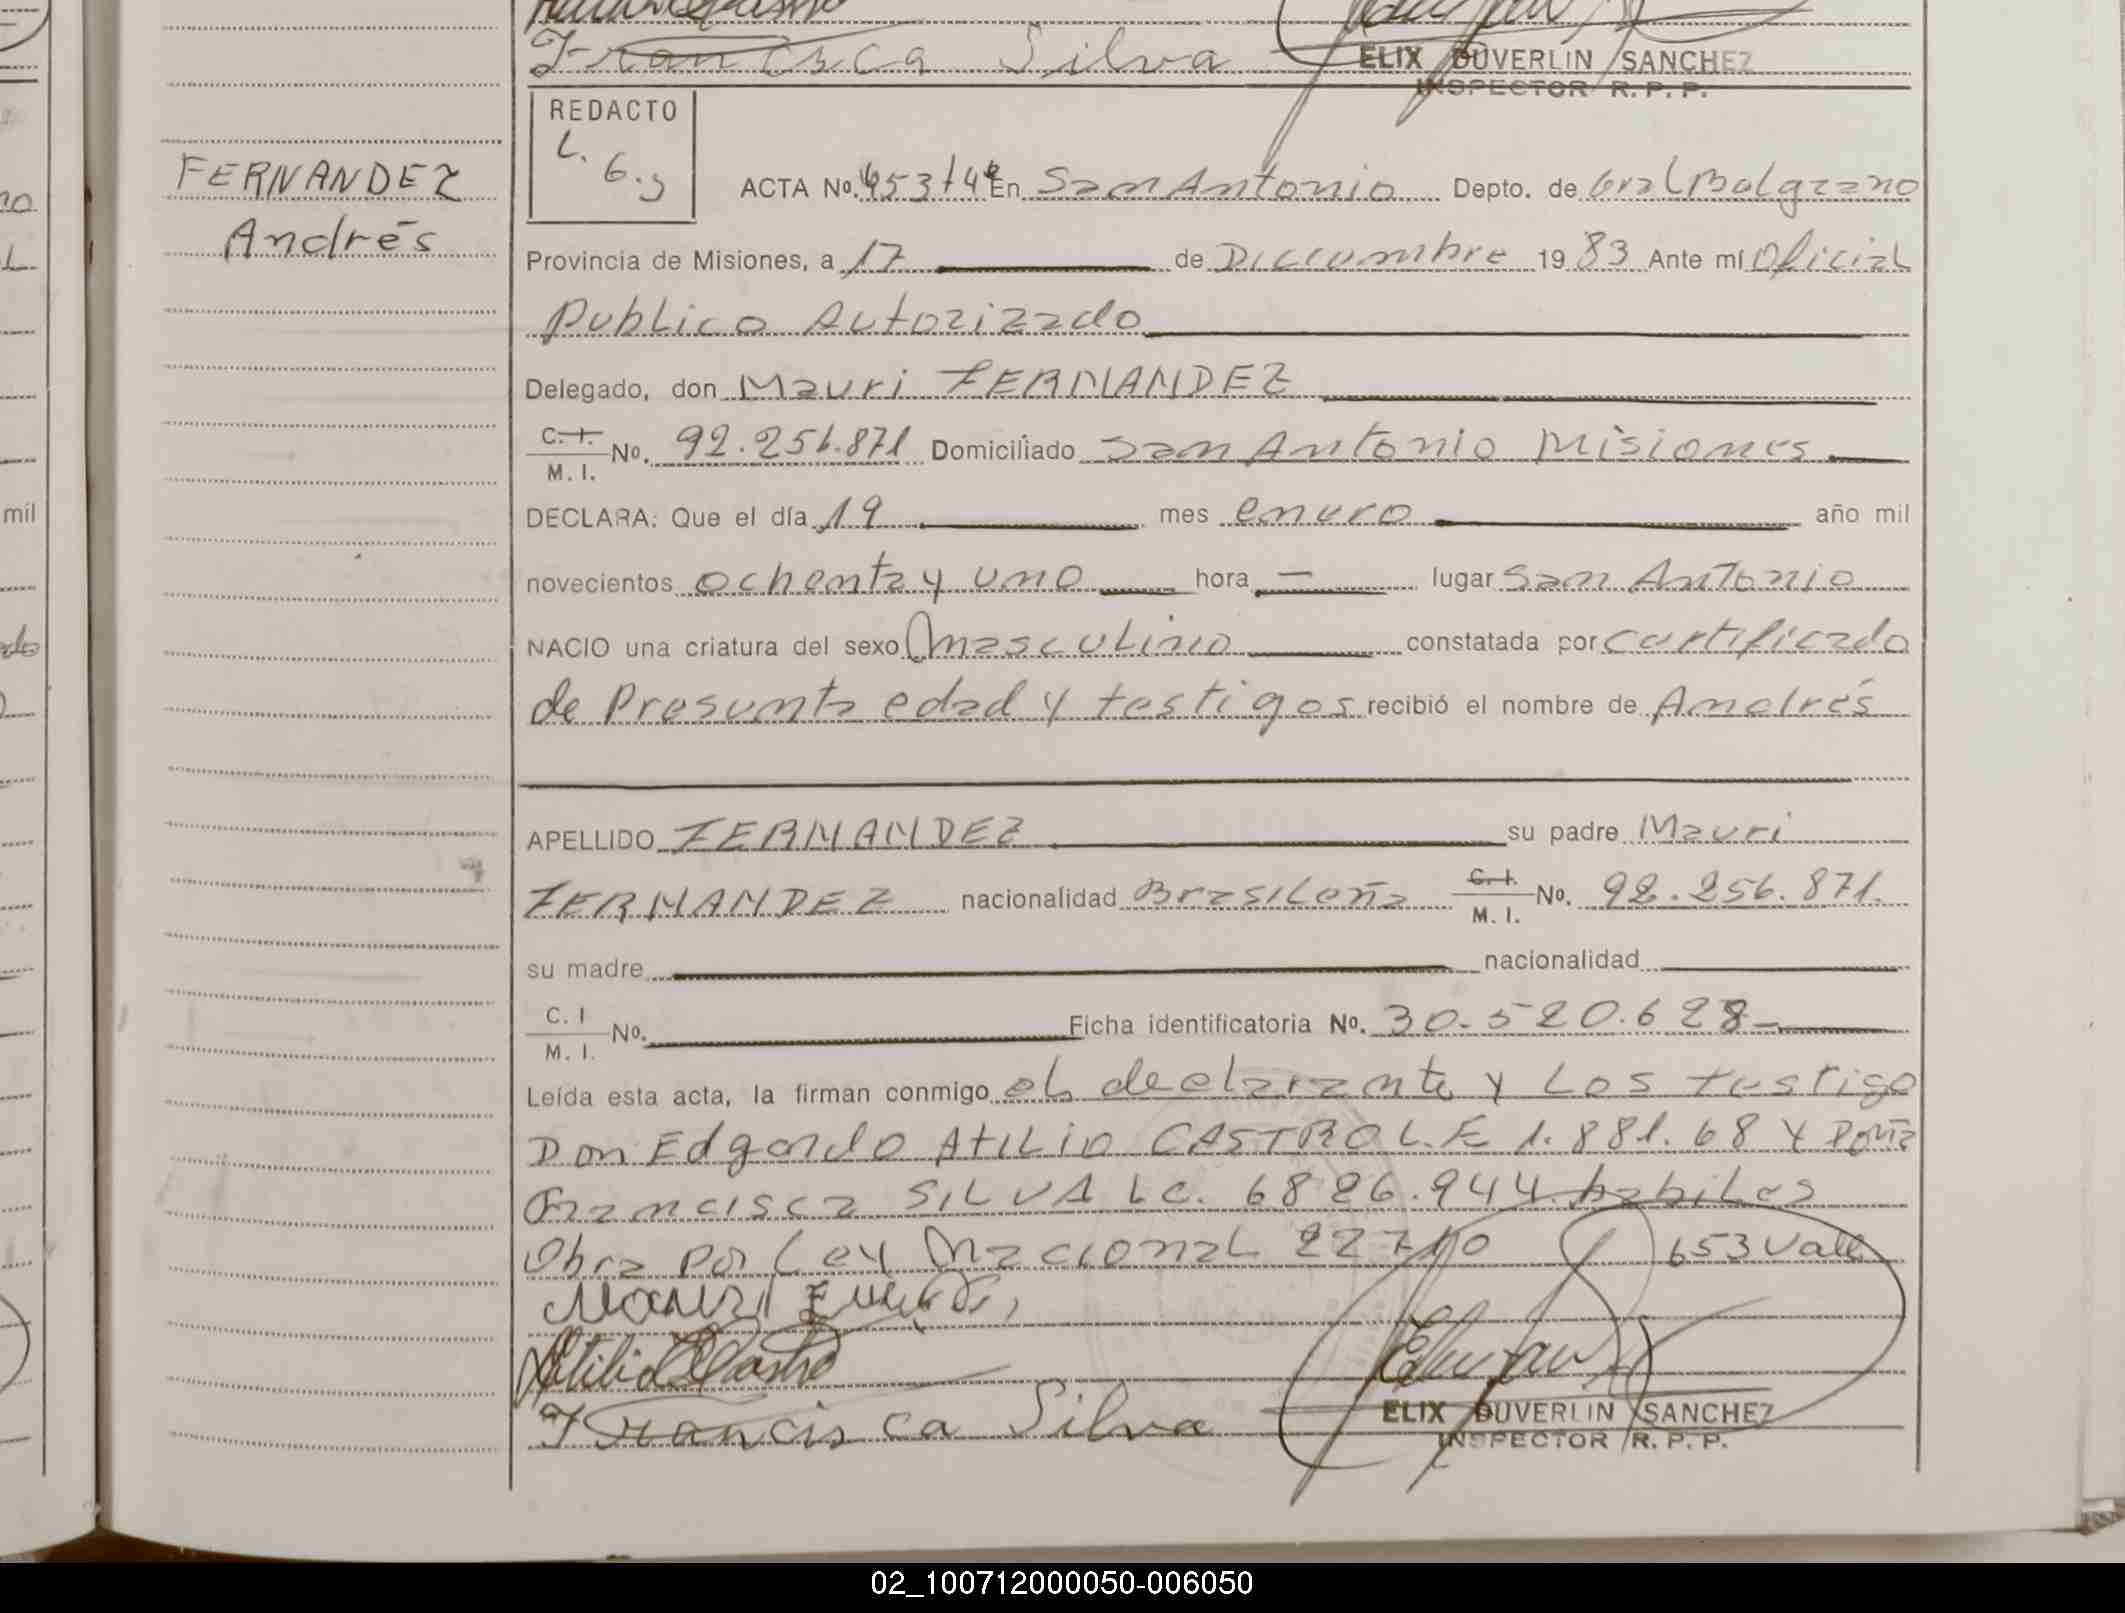 Francisca Silva
ELIX DUVERLIN SANCHEZ
INSPECTOR R. P. P.
REDACTO
L. G. J
FERNANDEZ
Andrés
ACTA No. 653 t 4º En San Antonio Depto. de Gral Belgrano
Provincia de Misiones, a 17 de Diciembre 1983 Ante mí Oficial
Publico Autorizado
Delegado, don Mauri FERNANDEZ
C. I. / M. I. No. 92.256.871 Domiciliado San Antonio Misiones
DECLARA: Que el día 19 mes enero año mil
novecientos ochenta y uno hora — lugar San Antonio
NACIO una criatura del sexo Masculino constatada por certificado
de Presunta edad y testigos recibió el nombre de Andrés
APELLIDO FERNANDEZ su padre Mauri
FERNANDEZ nacionalidad Brasileña C. I. / M. I. No. 92.256.871.
su madre nacionalidad
C. I / M. I. No. Ficha identificatoria No. 30.520.628-
Leída esta acta, la firman conmigo el declarante y Los testigo
Don Edgardo Atilio CASTRO L.E 1.881.68 y Doña
Francisca SILVA L C. 6826.944 habiles
Obra por Ley Nacional 22710 653 Vale
Francisca Silva
ELIX DUVERLIN SANCHEZ
INSPECTOR R. P. P.
mil
02_100712000050-006050